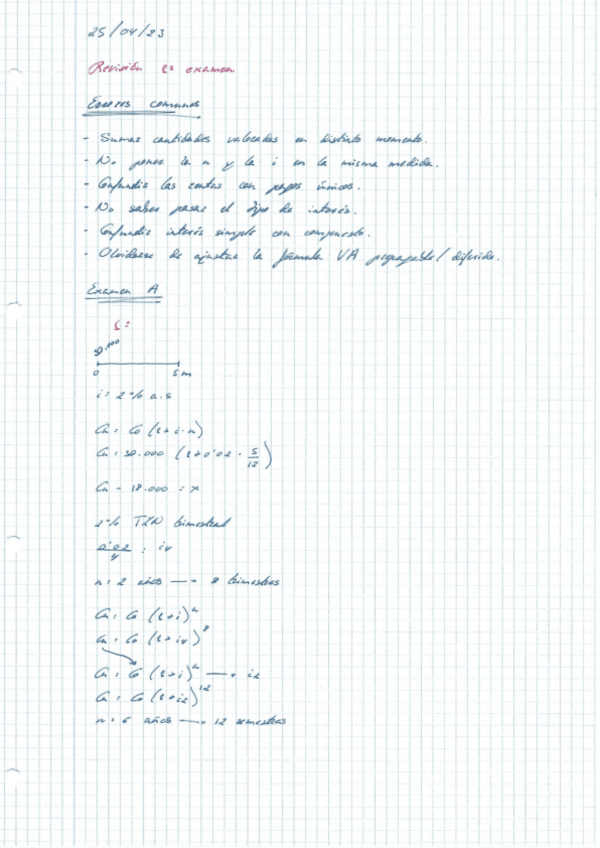 25/04/23
Revisión 1º examen
Errores comunes
- Sumar cantidades valoradas en distinto momento.
- No poner la n y la i en la misma medida.
- Confundir las rentas con pagos únicos.
- No saber pasar el tipo de interés.
- Confundir interés simple con compuesto.
- Olvidarse de ajustar la fórmula VA prepagable/diferida.
Examen A
1:
30.000
0 5m
i = 2% a.s
Cn = Co (1+i·n)
Cn = 30.000 (1+0'02 · 5/12)
Cn - 18.000 = x
2% TIN trimestral
0'02/4 = i4
n = 2 años → 8 trimestres
Cn = Co (1+i)^n
Cn = Co (1+i4)^8
Cn = Co (1+i)^n → i2
Cn = Co (1+i2)^12
n = 6 años → 12 semestres